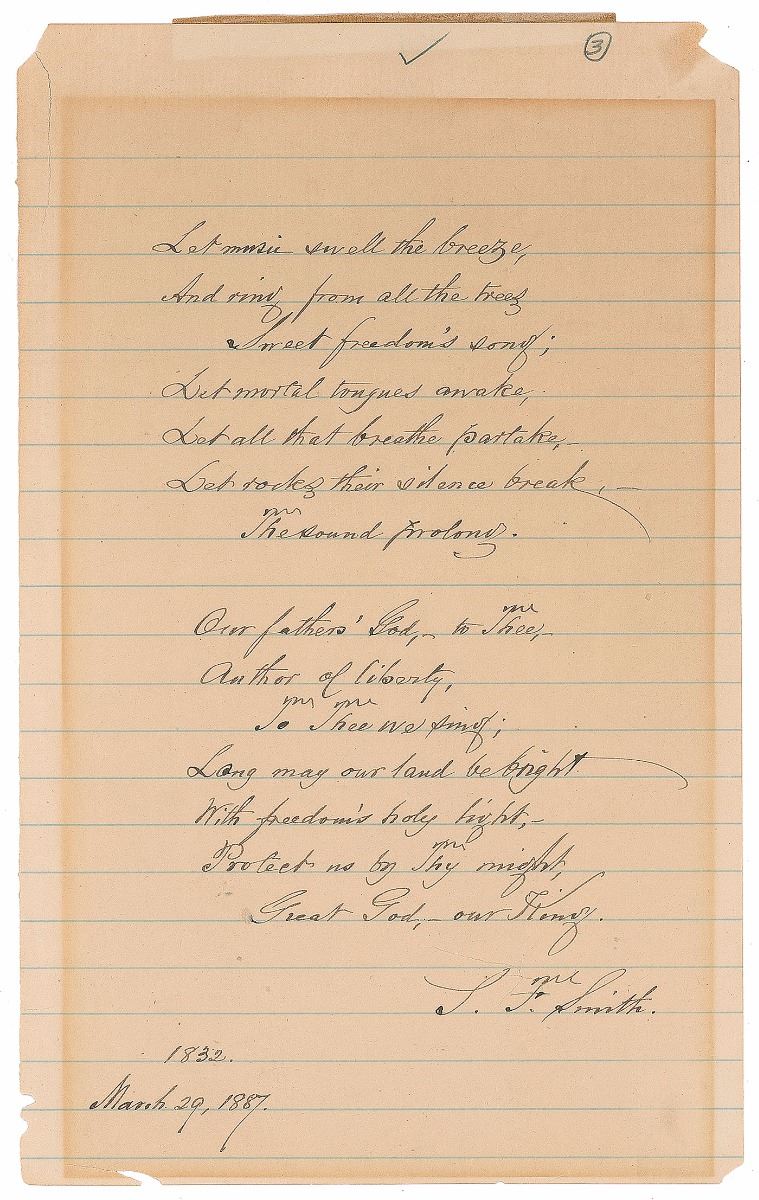 3
Let music swell the breeze,
And ring from all the trees
Sweet freedom's song;
Let mortal tongues awake,
Let all that breathe partake,–
Let rocks their silence break,–
The sound prolong.
Our fathers' God,– to Thee,–
Author of liberty,
To Thee we sing;
Long may our land be bright
With freedom's holy light,–
Protect us by Thy might,
Great God,– our King.
S. F. Smith.
1832.
March 29, 1887.